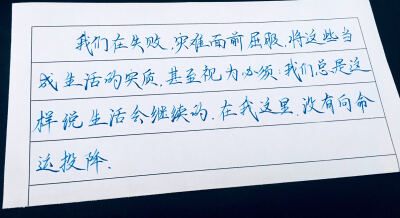 我们在失败,灾难面前屈服,将这些当
成生活的实质,甚至视为必须:我们总是这
样说生活会继续的,在我这里,没有向命
运投降.